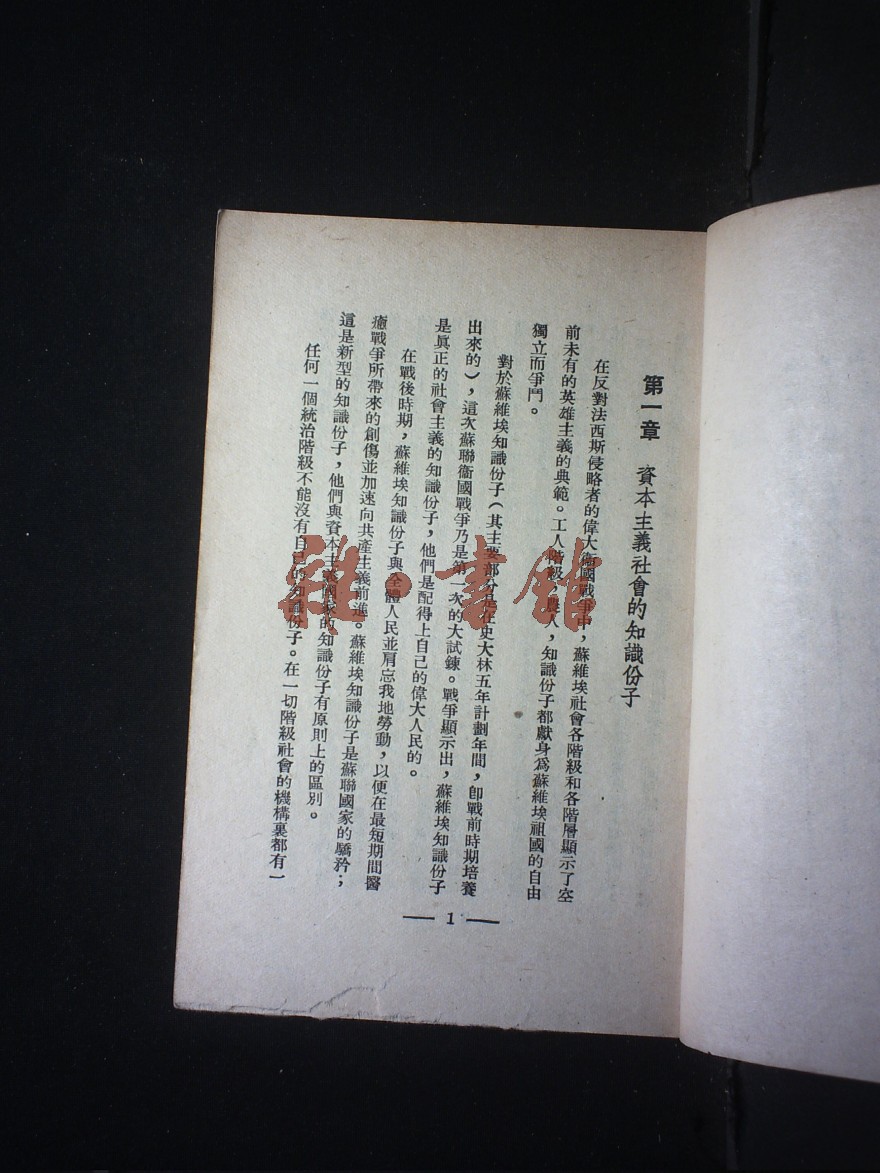 第一章 資本主義社會的知識份子
在反對法西斯侵略者的偉大衞國戰爭中，蘇維埃社會各階級和各階層顯示了空
前未有的英雄主義的典範。工人階級，農人，知識份子都獻身爲蘇維埃祖國的自由
獨立而爭鬥。
對於蘇維埃知識份子（其主要部分是在史大林五年計劃年間，卽戰前時期培養
出來的），這次蘇聯衞國戰爭乃是第一次的大試鍊。戰爭顯示出，蘇維埃知識份子
是眞正的社會主義的知識份子，他們是配得上自己的偉大人民的。
在戰後時期，蘇維埃知識份子與全體人民並肩忘我地勞動，以便在最短期間醫
癒戰爭所帶來的創傷並加速向共產主義前進。蘇維埃知識份子是蘇聯國家的驕矜；
這是新型的知識份子，他們與資本主義國家的知識份子有原則上的區別。
任何一個統治階級不能沒有自己的知識份子。在一切階級社會的機構裏都有一
— 1 —
雜·書館